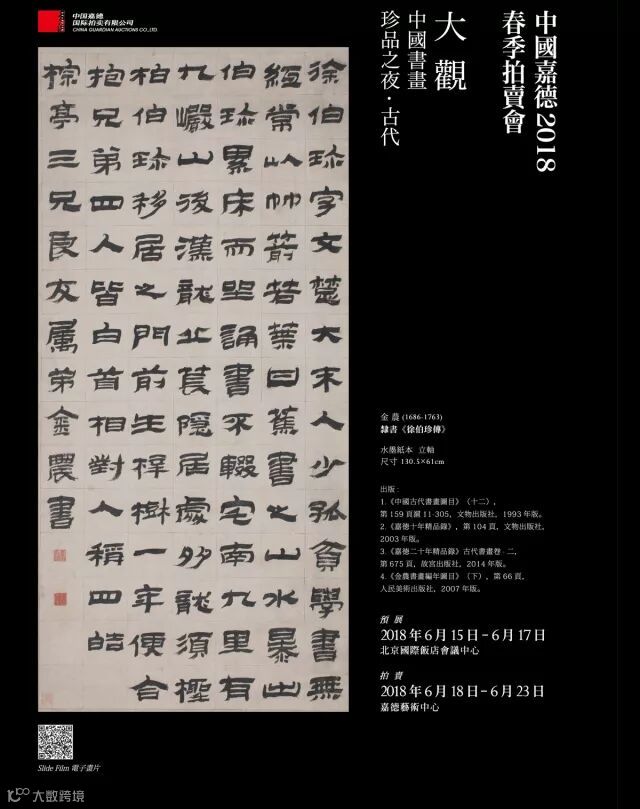 中国嘉德
国际拍卖有限公司
CHINA GUARDIAN AUCTIONS CO.,LTD.
中國嘉德2018
春季拍賣會
大觀
中國書畫
珍品之夜·古代
徐伯珍字文楚大末人少孤貧學書無
經常以竹箭若葉曰蕉書之山水暴出
伯珍累床而坐誦書不輟宅南九里有
九巖山後漢龍丘萇隱居處多龍須檉
柏伯珍移居之門前生梓樹一年便合
抱兄弟四人皆白首相對人稱四皓
棕亭三兄良友属弟金農書
金農 (1686-1763)
隸書《徐伯珍傳》
水墨紙本 立軸
尺寸 130.5×61cm
出版：
1.《中國古代書畫圖目》（十二），
第 159 頁滬 11-305，文物出版社，1993 年版。
2.《嘉德十年精品錄》，第 104 頁，文物出版社，
2003 年版。
3.《嘉德二十年精品錄》古代書畫卷·二，
第 675 頁，故宮出版社，2014 年版。
4.《金農書畫編年圖目》（下），第 66 頁，
人民美術出版社，2007 年版。
預展
2018 年 6 月 15 日 – 6 月 17 日
北京國際飯店會議中心
拍賣
2018 年 6 月 18 日 – 6 月 23 日
嘉德藝術中心
Slide Film 電子畫片
大数跨境